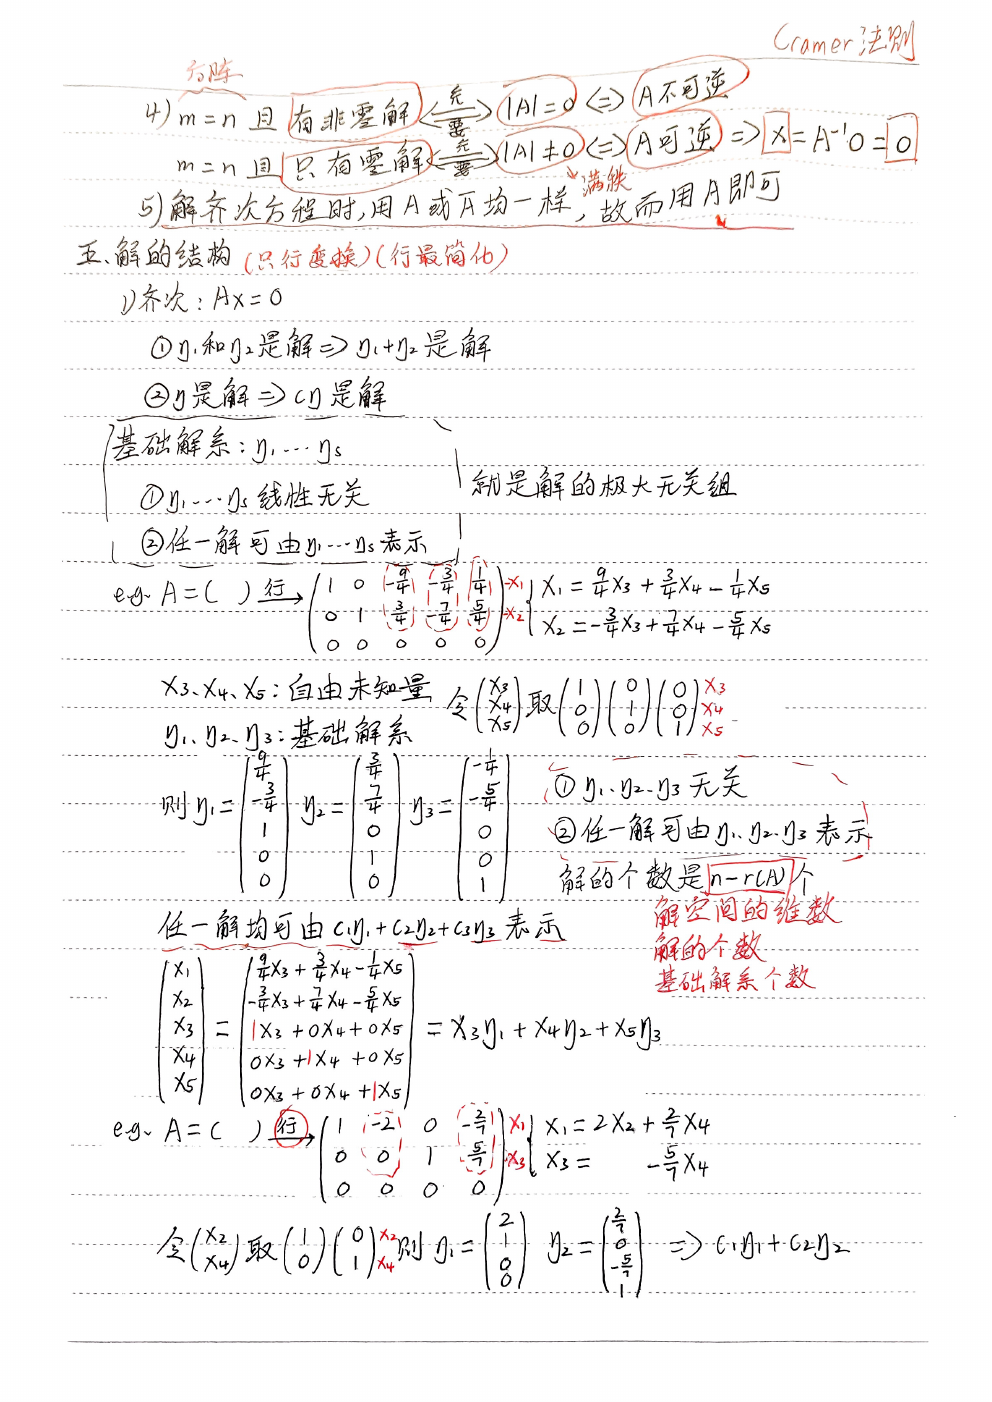 Cramer法则
方阵
4) m=n 且 有非零解 <=充要=> |A|=0 <=> A不可逆
m=n 且 只有零解 <=充要=> |A|≠0 <=> A可逆 => x=A⁻¹0=0
满秩
5) 解齐次方程时,用A或Ā均一样,故而用A即可
五、解的结构 (只行变换)(行最简化)
1) 齐次: Ax=0
① η₁和η₂是解 => η₁+η₂是解
② η是解 => cη是解
基础解系: η₁…ηs
① η₁…ηs线性无关
② 任一解可由η₁…ηs表示
就是解的极大无关组
e.g. A=( ) 行→
1 0 -9/4 -3/4 1/4 →x₁ { x₁=9/4x₃+3/4x₄-1/4x₅
0 1 3/4 -7/4 5/4 →x₂ x₂=-3/4x₃+7/4x₄-5/4x₅
0 0 0 0 0
x₃、x₄、x₅: 自由未知量 令(x₃ x₄ x₅) 取 (1 0 0) (0 1 0) (0 0 1) x₃ x₄ x₅
η₁、η₂、η₃: 基础解系
则 η₁=(9/4 -3/4 1 0 0) η₂=(3/4 7/4 0 1 0) η₃=(-1/4 -5/4 0 0 1)
① η₁、η₂、η₃无关
② 任一解可由η₁、η₂、η₃表示
解的个数是n-r(A)个
解空间的维数
解的个数
基础解系个数
任一解均可由c₁η₁+c₂η₂+c₃η₃表示
x₁ 9/4x₃+3/4x₄-1/4x₅
x₂ -3/4x₃+7/4x₄-5/4x₅
x₃ = 1x₃+0x₄+0x₅ = x₃η₁+x₄η₂+x₅η₃
x₄ 0x₃+1x₄+0x₅
x₅ 0x₃+0x₄+1x₅
e.g. A=( ) 行→
1 -2 0 -2/7 x₁ { x₁=2x₂+2/7x₄
0 0 1 5/7 →x₃ x₃= -5/7x₄
0 0 0 0
令(x₂ x₄) 取 (1 0) (0 1) x₂ x₄ 则 η₁=(2 1 0 0) η₂=(2/7 0 -5/7 1) => c₁η₁+c₂η₂